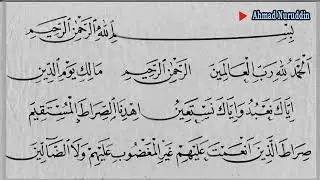 Ahmad Nuruddin
بِسْمِ اللهِ الرَّحْمٰنِ الرَّحِيْمِ
اَلْحَمْدُ لِلهِ رَبِّ الْعَالَمِيْنَ الرَّحْمٰنِ الرَّحِيْمِ مَالِكِ يَوْمِ الدِّيْنِ
اِيَّاكَ نَعْبُدُ وَاِيَّاكَ نَسْتَعِيْنُ اِهْدِنَا الصِّرَاطَ الْمُسْتَقِيْمَ
صِرَاطَ الَّذِيْنَ اَنْعَمْتَ عَلَيْهِمْ غَيْرِ الْمَغْضُوْبِ عَلَيْهِمْ وَلَا الضَّالِّيْنَ